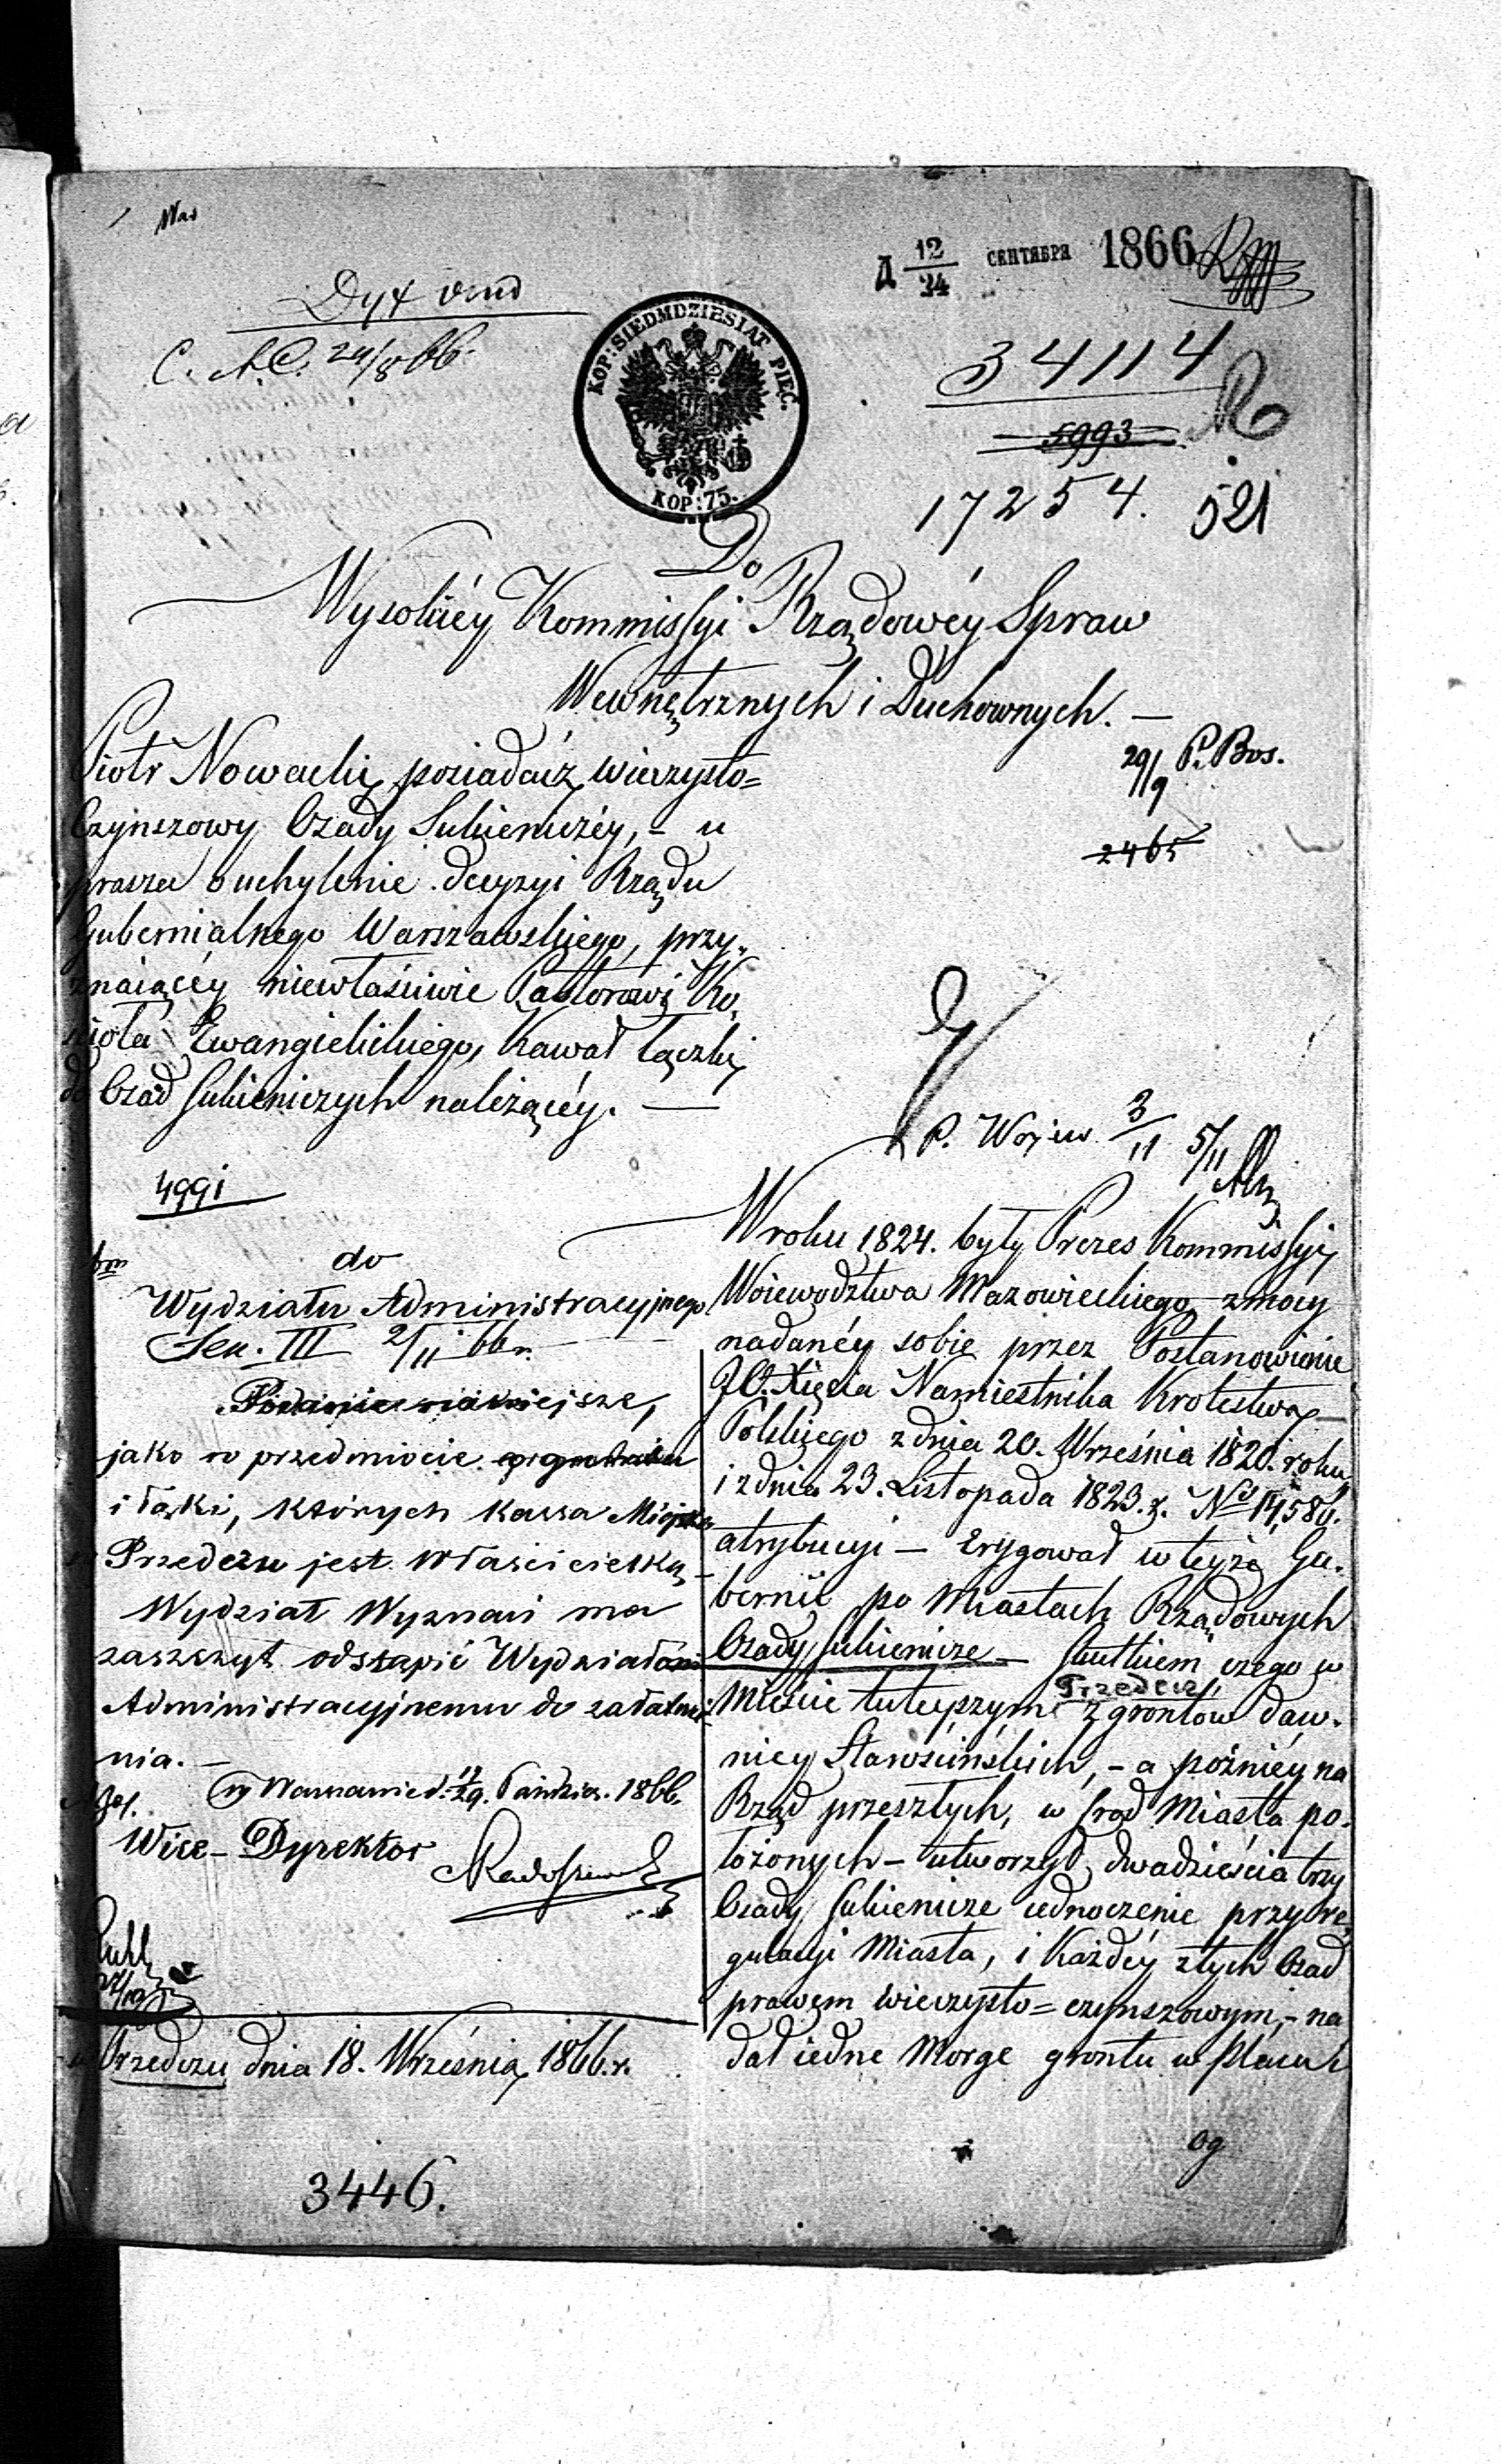 Д 12/24 СЕНТЯБРЯ 1866
C. 24/8 66.
KOP: SIEDMDZIESIĄT PIĘĆ.
KOP: 75.
34114
5993
17254. 521
Do
Wysokiéy Kommisſyi Rządowéy Spraw
Wewnętrznych i Duchownych. —
29/9 P. Bos.
2465
Piotr Nowacki, posiadacz wieczysto=
Czynszowy Osady Sukieniczéy, – u
prasza o uchylenie decyzyi Rządu
Gubernialnego Warszawskiego, przy„
znaiącéy niewłaściwie Pastorowi Ko„
ścioła Ewangielickiego, Kawał Łączki
do Osad Sukieniczych należącéy. —
P. Wojew 3/11 5/11
4991
do
Wydziału Administracyjnego
Sek. III 2/11 66 r.
Podanie niniejsze,
jako w przedmiocie gruntu
i łąki, których Kassa Miejska
w Przedczu jest właścicielką,
Wydział Wyznań ma
zaszczyt odstąpić Wydziałowi
Administracyjnemu do załatwie
nia. —
w Warszawie d. 17/29. Paździer. 1866.
Wice – Dyrektor
w Przedczu dnia 18. Września 1866. r.
3446.
W roku 1824. były Prezes Kommisſyi
Woiewództwa Mazowieckiego z mocy
nadanéy sobie przez Postanowienie
JO. Xięcia Namiestnika Krolestwa
Polskiego z dnia 20. Września 1820. roku
i z dnia 23. Listopada 1823. r. No 14,580.
atrybucyi – Erygował w teyże Gu„
bernii po Miastach Rządowych
Osady Sukienicze – skutkiem czego w
Mieście tuteyszym Przedcz z grontów daw„
niey Starościńskich, – a poźniéy na
Rząd przeszłych, w środ Miasta po„
łożonych – utworzył dwadzieścia trzy
Osady Sukienicze iednoczenie przy re„
gulacyi Miasta, i Każdéy z tych Osad
prawem wieczysto = czynszowym, – na
dał iedne Morge grontu w placu i
og